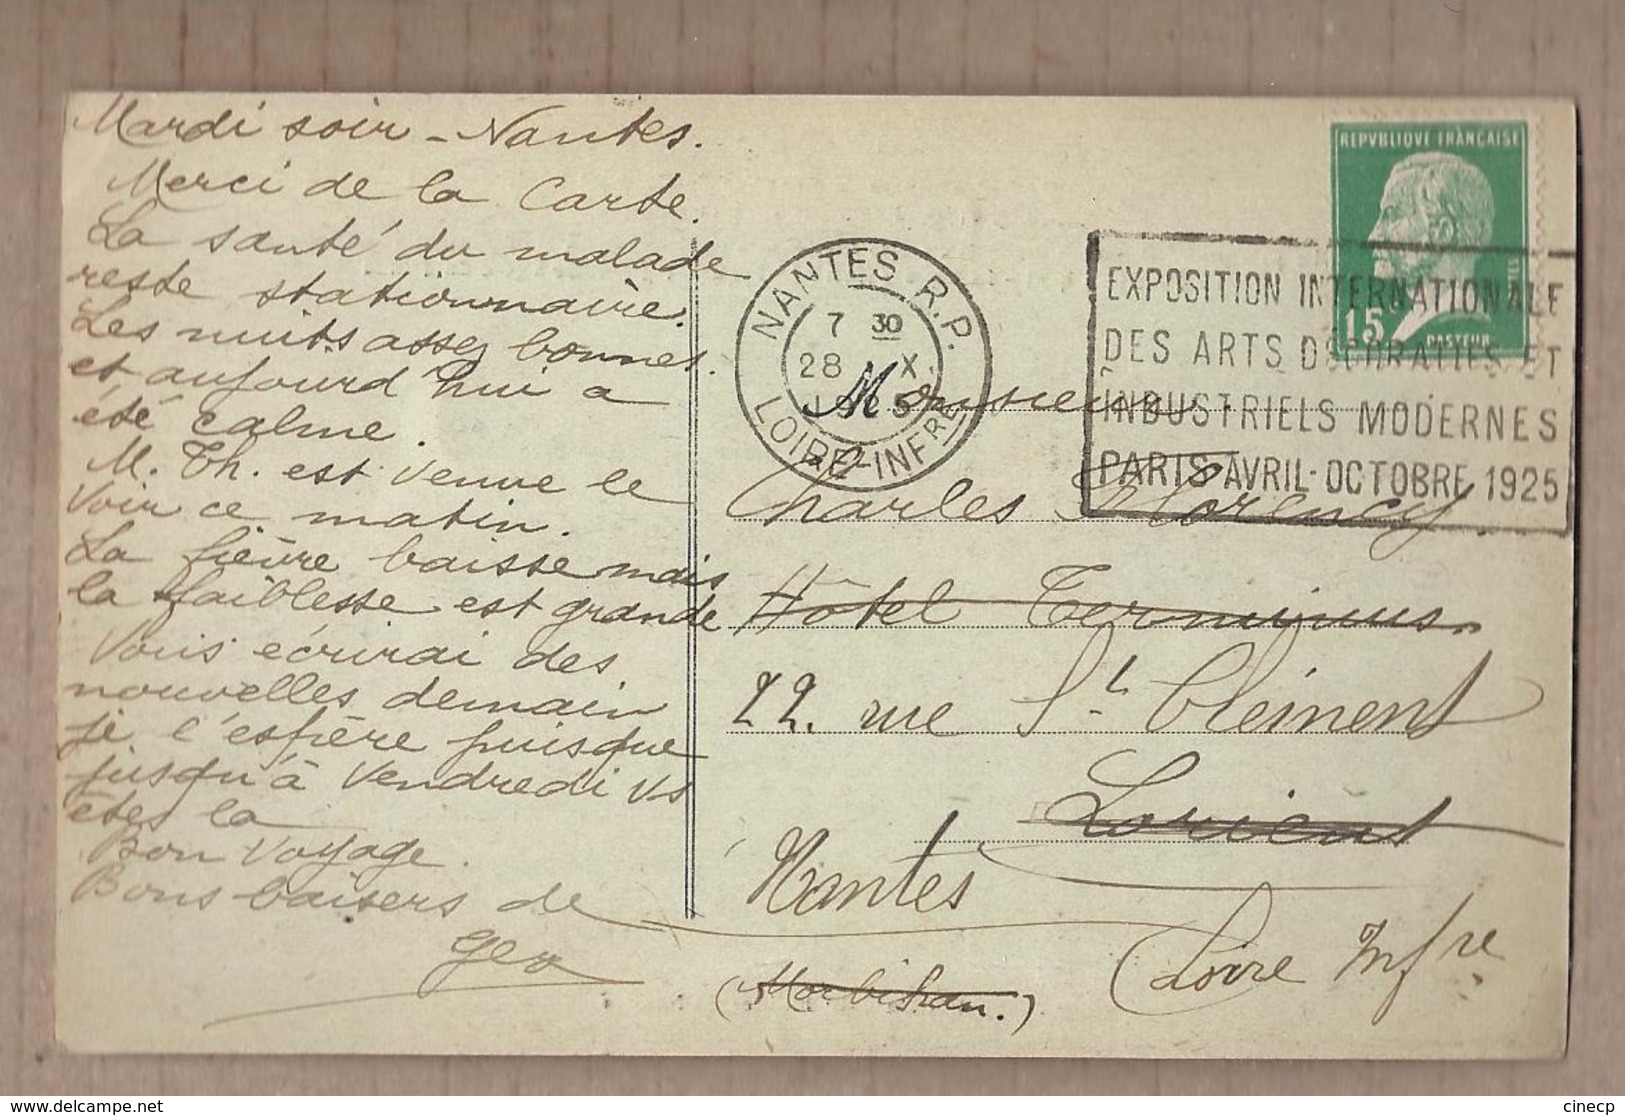 Mardi soir - Nantes.
Merci de la Carte.
La santé du malade
reste stationnaire.
Les nuits assez bonnes.
et aujourd'hui a
été calme.
M. Th. est venue le
voir ce matin.
La fièvre baisse mais
la faiblesse est grande
Vous écrirai des
nouvelles demain
je l'espère puisque
jusqu'à Vendredi Vs
êtes la
Bon Voyage.
Bons baisers de
Geo
REPVBLIQVE FRANÇAISE
15
PASTEUR
NANTES R.P.
7 30
28 X
1925
LOIRE-INFRE
EXPOSITION INTERNATIONALE
DES ARTS DÉCORATIFS ET
INDUSTRIELS MODERNES
PARIS AVRIL-OCTOBRE 1925
Monsieur
Charles Florency.
Hôtel Terminus.
22. rue St Clément
Lorient
Nantes
(Loire Infre
(Morbihan.)
delcampe.net
cinecp